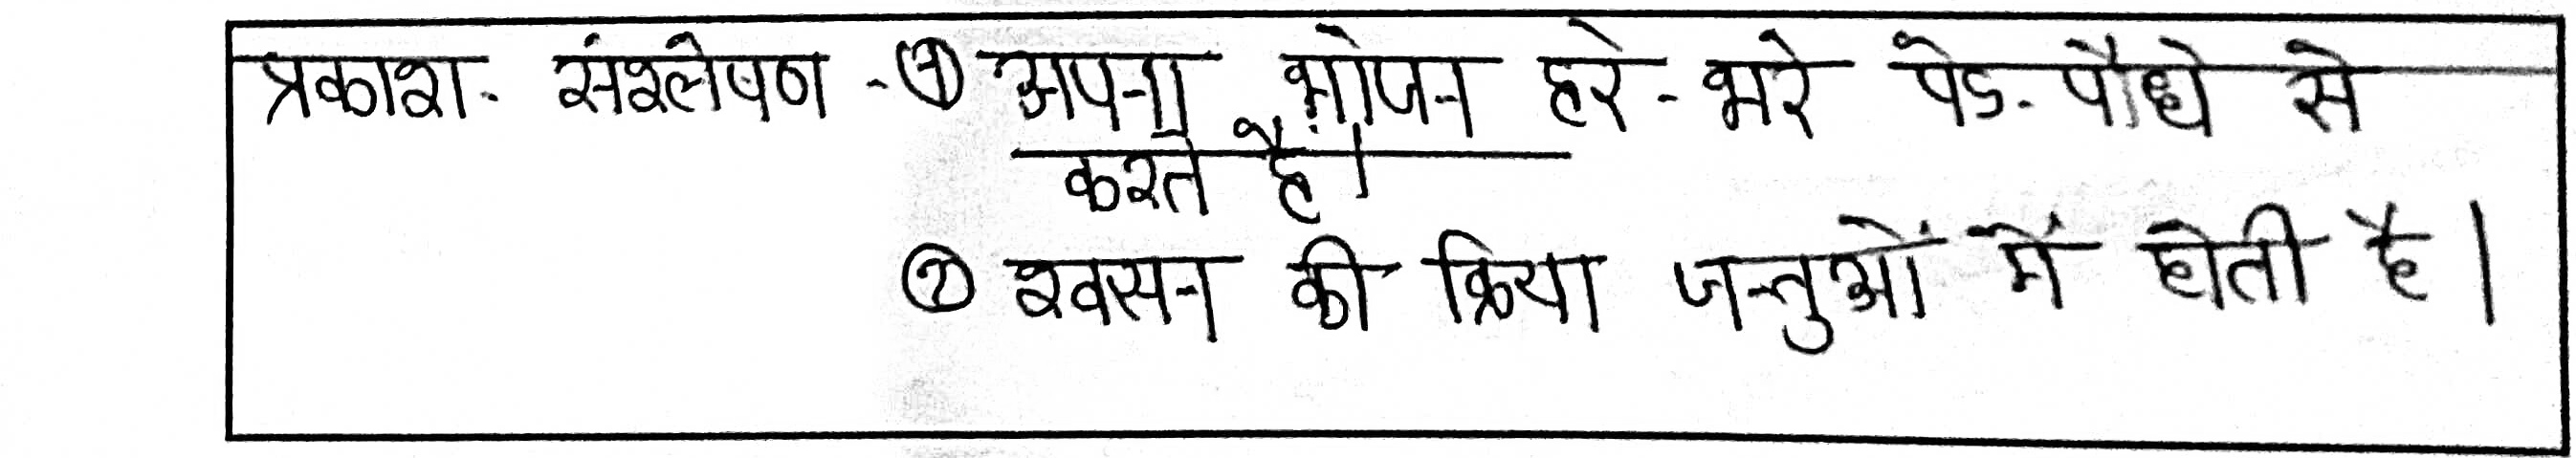 प्रकाश- संश्लेषण - ① अपना भोजन हरे-भरे पेड-पौधे से
करते है।
② श्वसन की क्रिया जन्तुओं में होती है।